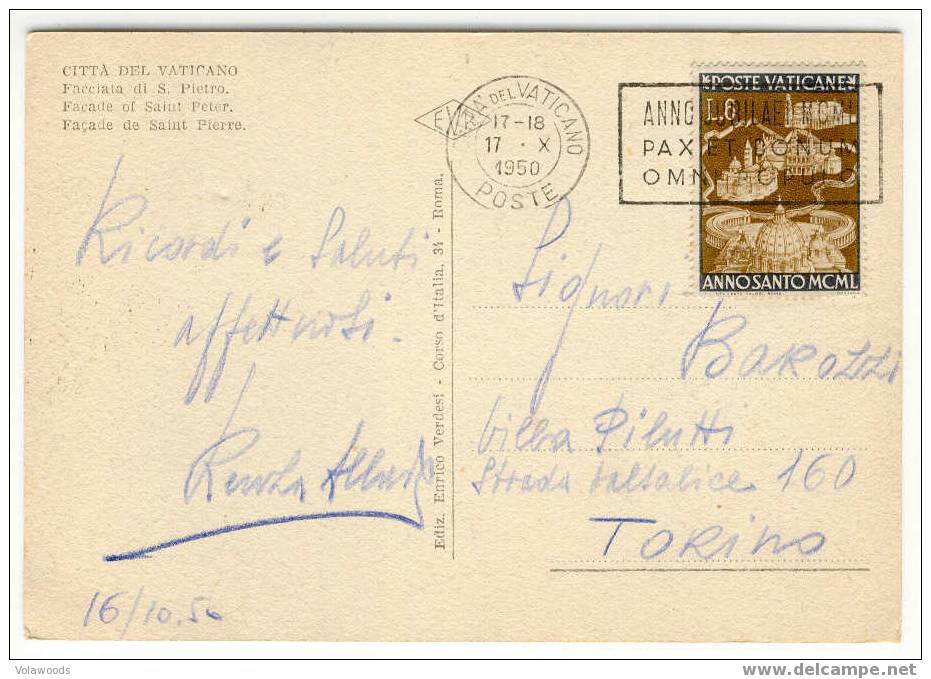 CITTÀ DEL VATICANO
Facciata di S. Pietro.
Facade of Saint Peter.
Façade de Saint Pierre.
CITTÀ DEL VATICANO
17-18
17 · X
1950
POSTE
ANNO IUBILAEI MCML
PAX ET BONUM
OMNI POPULO
POSTE VATICANE
L.6
ANNO SANTO MCML
Ricordi e Saluti
affettuosi.
16/10.50
Ediz. Enrico Verdesi - Corso d'Italia, 34 - Roma.
EV
Signori
Barozzi
Villa Pilutti
Strada Valsalice 160
Torino
Volawoods
www.delcampe.net